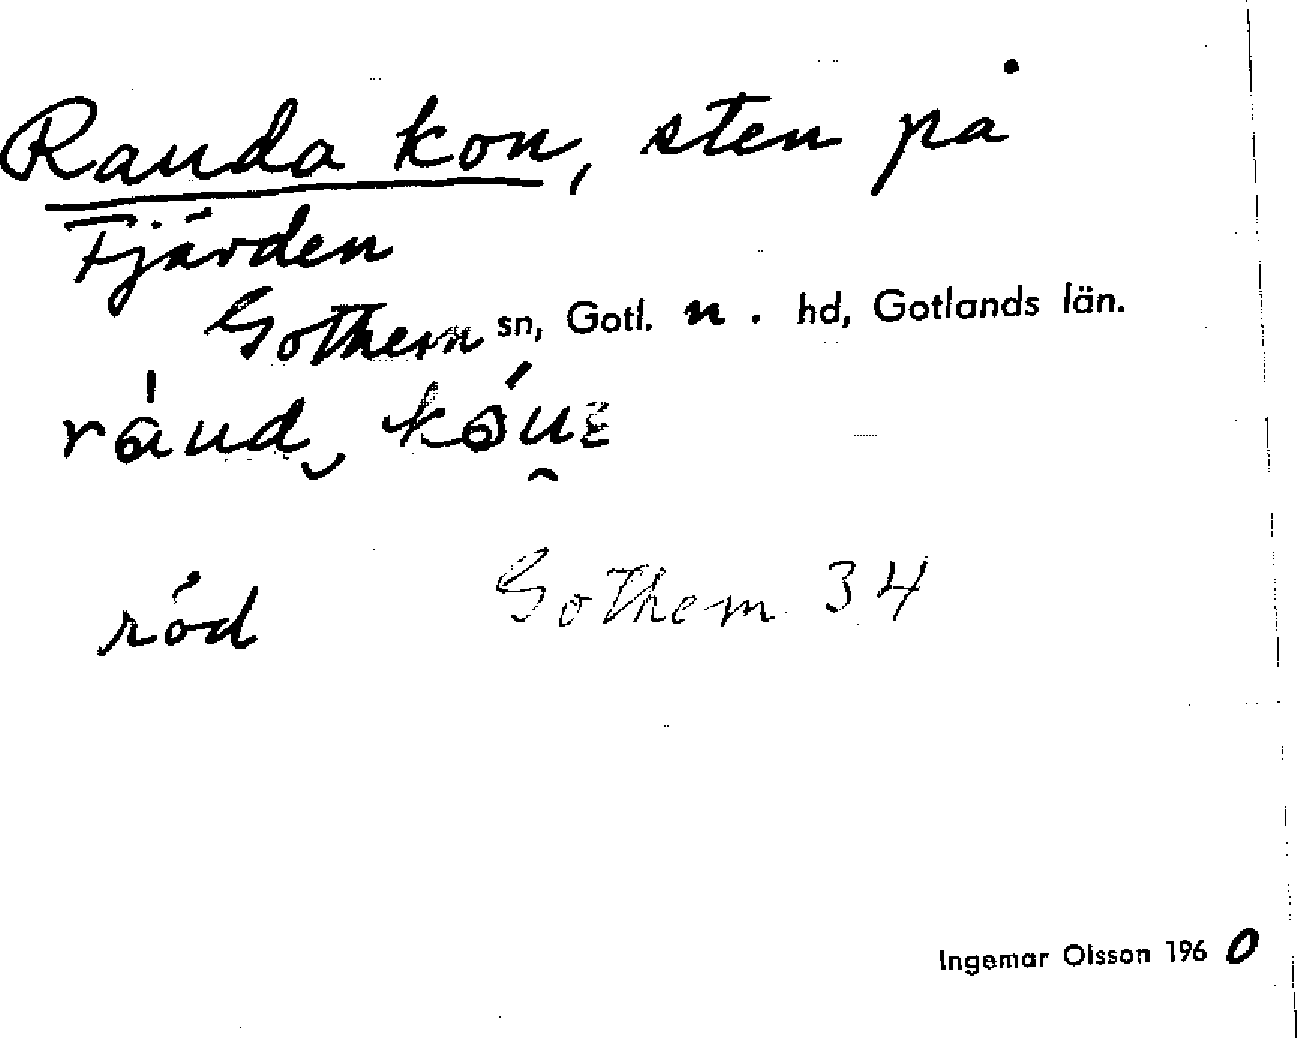 Rauda kou, sten på
Fjärden
Gothem sn, Gotl. n. hd, Gotlands län.
röd
Gothem 34
Ingemar Olsson 1960